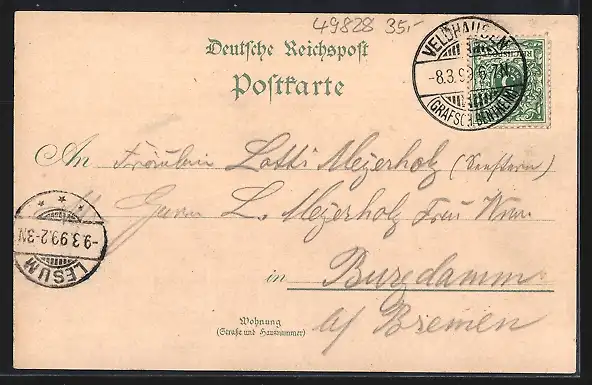 49828 35,-
Deutsche Reichspost
Postkarte
VELDHAUSEN
-8.3.99.6-7N
(GRAFSCH. BENTHEIM)
An Fräulein Lotti Meyerholz (Seestern)
Herrn L. Meyerholz Frau Wwe.
-9.3.99.2-3N
LESUM
in Burgdamm
b/ Bremen
Wohnung
(Straße und Hausnummer)